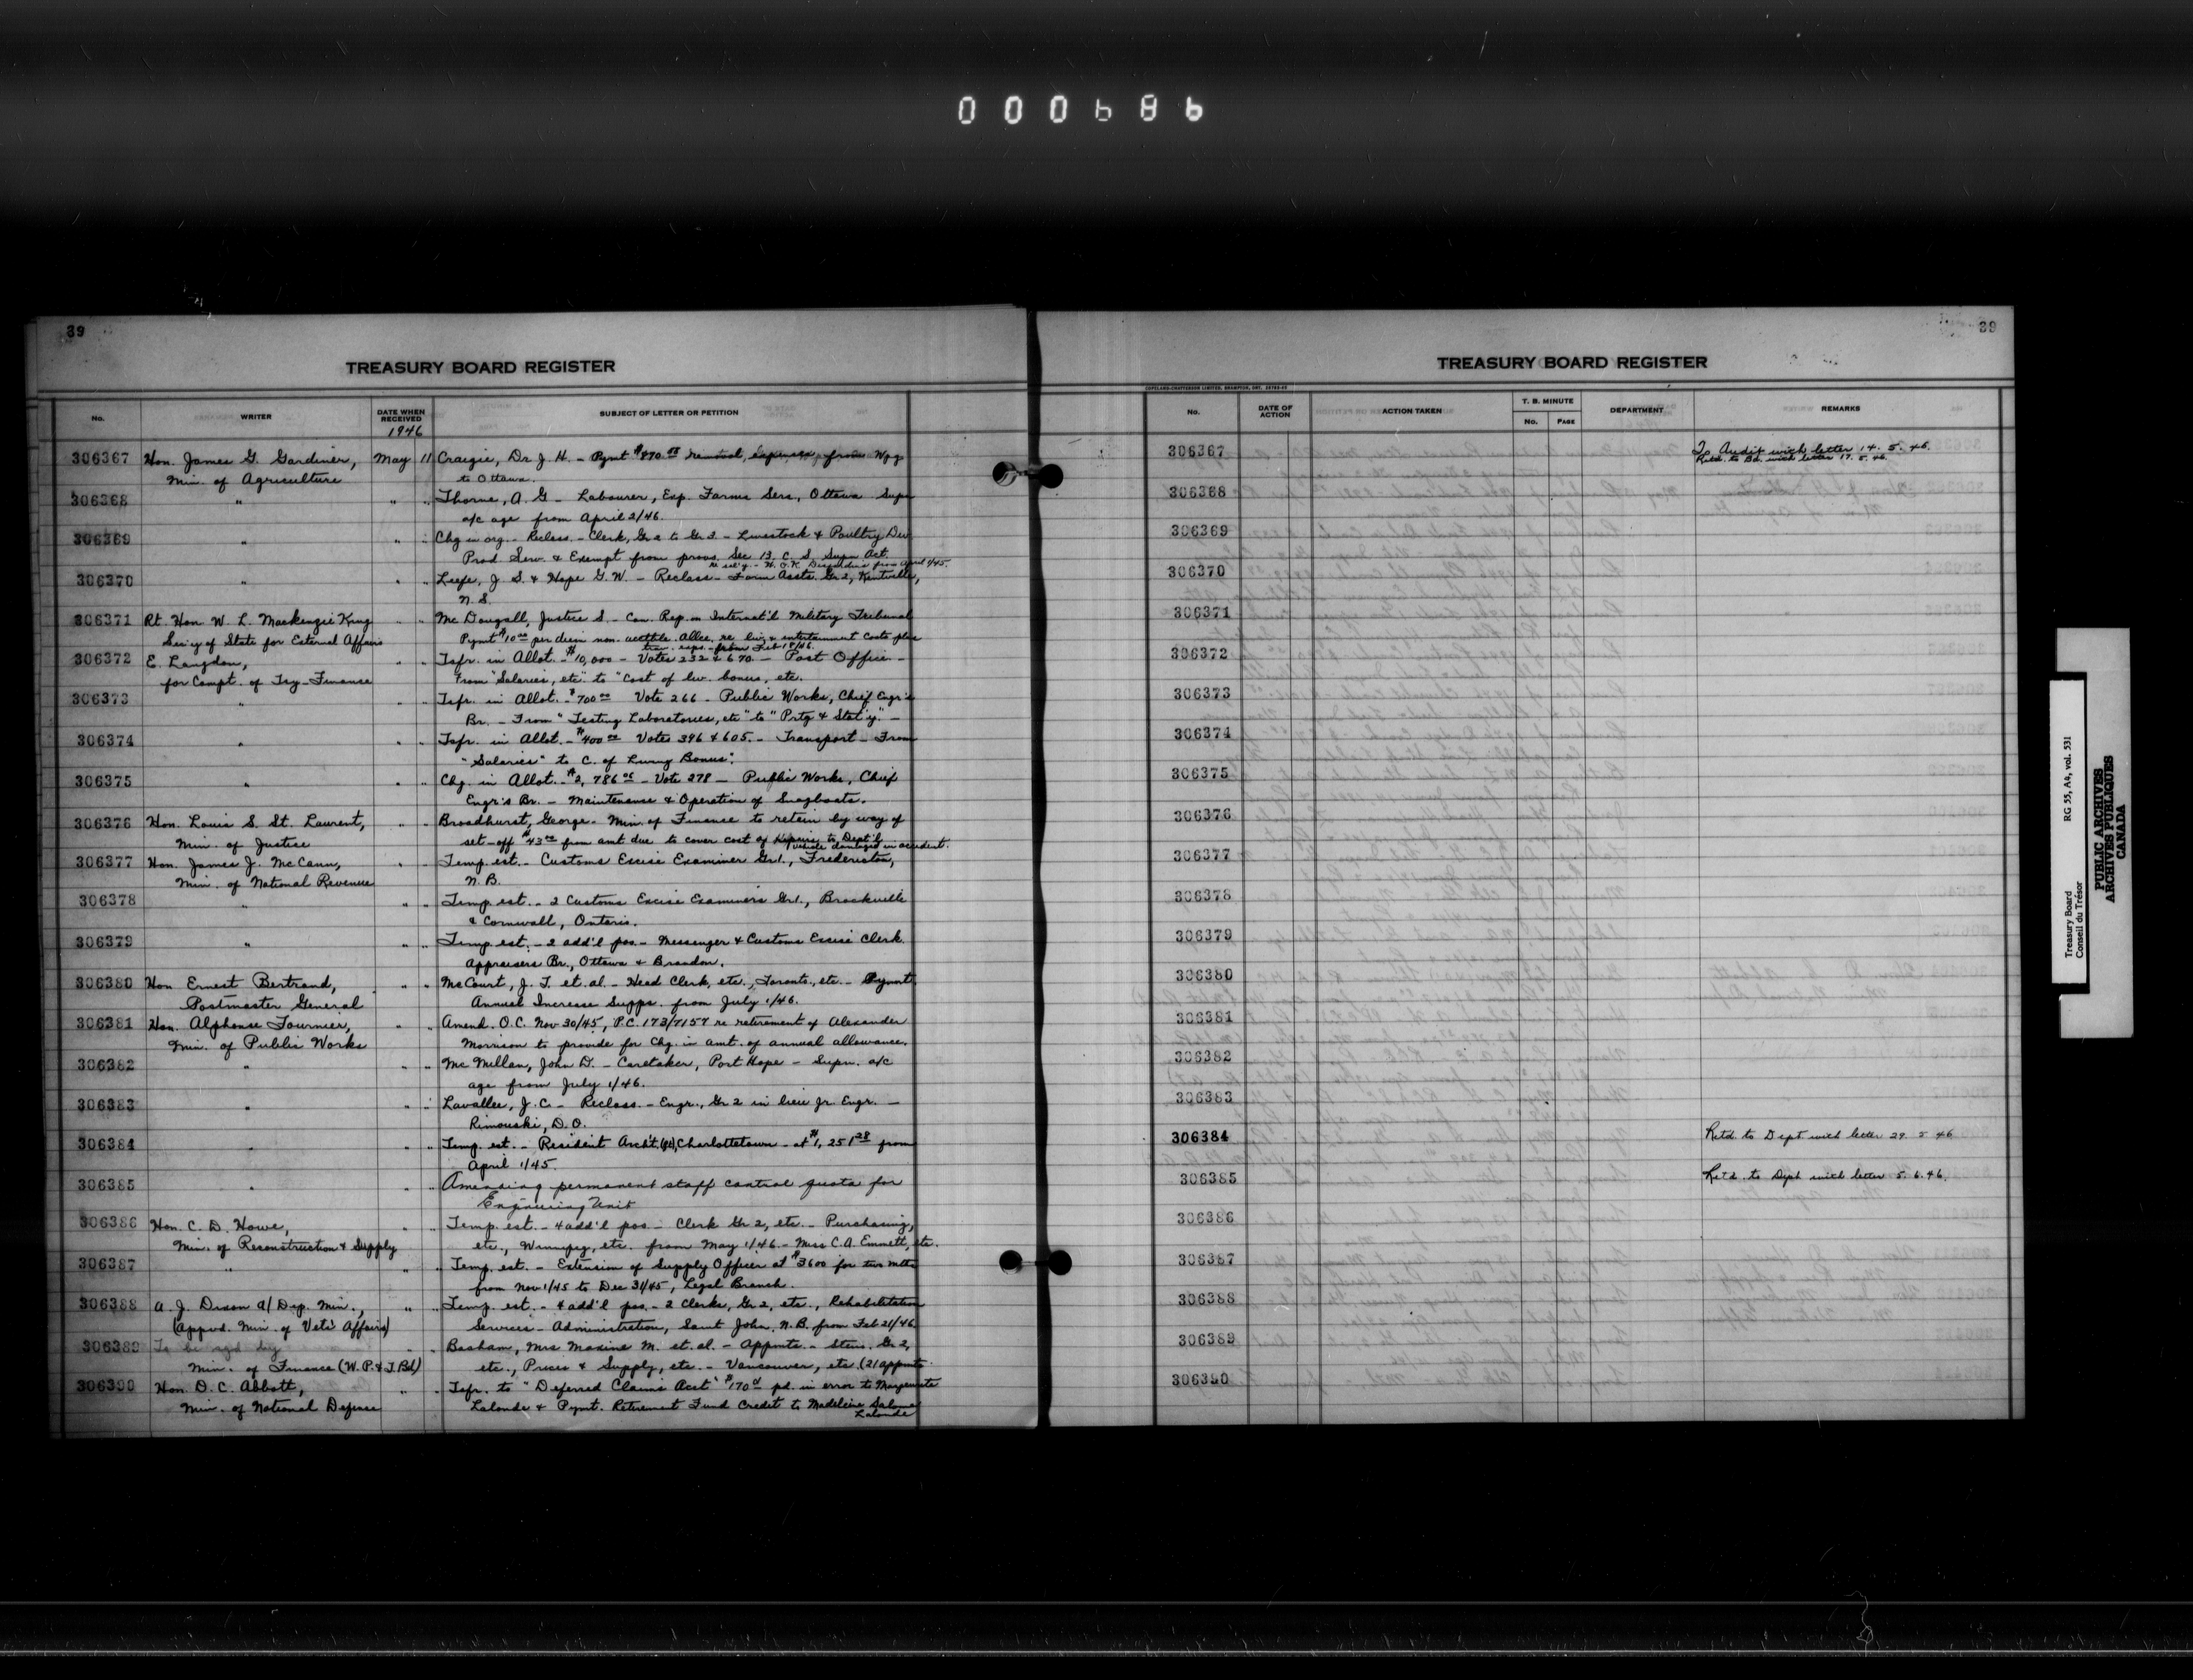 000686
39
TREASURY BOARD REGISTER
No. WRITER DATE WHEN RECEIVED SUBJECT OF LETTER OR PETITION
1946
306367 Hon. James G. Gardiner, May 11 Craigie, Dr. J. H. - Pymt removal expenses from Wpg
Min. of Agriculture to Ottawa.
306368 " " " Thorne, A. G - Labourer, Exp. Farms Serv., Ottawa Supn
a/c age from April 2/46.
306369 " " " Chg in org. - Reclass. - Clerk, Gr 2 to Gr 3 - Livestock & Poultry Div
Prod Serv. & Exempt from provs. Sec. 13, C. S. Supn Act.
306370 " " " Leefe, J. S. & Hope G. W - Reclass - Farm Assts. Gr 2, Kentville,
N. S.
306371 Rt. Hon W. L. Mackenzie King " " Mc Dougall, Justice S. - Can. Rep. on Internat'l Military Tribunal
Sec'y of State for External Affairs Pymt $10.00 per diem non. acctble. Allce. re liv. & entertainment costs plus
trav. exps. from Feb 18/46.
306372 E. Langdon, " " Tsfr. in Allot. - $10,000 - Votes 232 & 670 - Post Office -
for Compt. of Try-Finance From "Salaries, etc." to "Cost of liv. bonus, etc.
306373 " " " Tsfr. in Allot. - $700.00 Vote 266 - Public Works, Chief Engr's
Br. - From "Testing Laboratories, etc" to "Prtg & Stat'y." -
306374 " " " Tsfr. in Allot. - $400.00 Votes 396 & 605. - Transport - From
"Salaries" to C. of Living Bonus".
306375 " " " Chg. in Allot. - $2,786.05 - Vote 278 - Public Works, Chief
Engr's Br. - Maintenance & Operation of Snagboats.
306376 Hon. Louis S. St. Laurent, " " Broadhurst, George - Min. of Finance to retain by way of
Min. of Justice set-off $43.00 from amt due to cover cost of repairs to Dept'l
vehicle damaged in accident.
306377 Hon. James J. McCann, " " Temp. est. - Customs Excise Examiner Gr 1., Fredericton,
Min. of National Revenue N. B.
306378 " " " Temp. est. - 2 Customs Excise Examiners Gr 1., Brockville
& Cornwall, Ontario.
306379 " " " Temp. est. - 2 add'l pos. - Messenger & Customs Excise Clerk
Appraisers Br., Ottawa & Brandon.
306380 Hon Ernest Bertrand, " " McCourt, J. T. et. al. - Head Clerk, etc., Toronto, etc. - Pymnt
Postmaster General Annual Increase Supps. from July 1/46.
306381 Hon. Alphonse Fournier, " " Amend. O.C. Nov 30/45, P.C. 173/7157 re retirement of Alexander
Min. of Public Works Morrison to provide for Chg. in amt. of annual allowance.
306382 " " " Mc Millan, John D. - Caretaker, Port Hope - Supn. a/c
age from July 1/46.
306383 " " " Lavallee, J. C. - Reclass. - Engr., Gr 2 in lieu Jr. Engr. -
Rimouski, D. O.
306384 " " " Temp. est. - Resident Archt. Charlottetown - at $1,251.28 from
April 1/45.
306385 " " " Amending permanent staff control quota for
Engineering Unit
306386 Hon. C. D. Howe, " " Temp. est. - 4 add'l pos - Clerk Gr 2, etc. - Purchasing,
Min. of Reconstruction & Supply etc., Winnipeg, etc. from May 1/46 - Miss C. A. Emmett, etc.
306387 " " " Temp. est. - Extension of Supply Officer at $3600 for two mths
from Nov 1/45 to Dec 31/45, Legal Branch.
306388 A. J. Dixon a/ Dep. Min., " " Temp. est. - 4 add'l pos. - 2 Clerks, Gr 2, etc., Rehabilitation
(Appvd. Min. of Vets' Affairs) Services - Administration, Saint John, N. B. from Feb 21/46
306389 To be sgd by " " Basham, Mrs Maxine M. et. al. - Appmts. - Steno. Gr 2,
Min. of Finance (W. P. & T. Bd) etc., Prices & Supply, etc. - Vancouver, etc. (21 appmts.
306390 Hon. D. C. Abbott, " " Tsfr. to "Deferred Claims Acct" pd. in error to Marguerite
Min. of National Defence Lalonde & Pymt. Retirement Fund Credit to Madeleine
Lalonde
39
TREASURY BOARD REGISTER
COPELAND-CHATTERSON LIMITED, BRAMPTON, ONT.
No. DATE OF ACTION ACTION TAKEN T. B. MINUTE No. PAGE DEPARTMENT REMARKS
306367 To Audit with letter 14. 5. 46.
Retd. to Bd. with letter 17. 5. 46.
306368
306369
306370
306371
306372
306373
306374
306375
306376
306377
306378
306379
306380
306381
306382
306383
306384 Retd. to Dept with letter 29 5 46
306385 Retd. to Dept with letter 5. 6. 46.
306386
306387
306388
306389
306390
Treasury Board RG 55, A4, vol. 531
Conseil du Trésor
PUBLIC ARCHIVES
ARCHIVES PUBLIQUES
CANADA